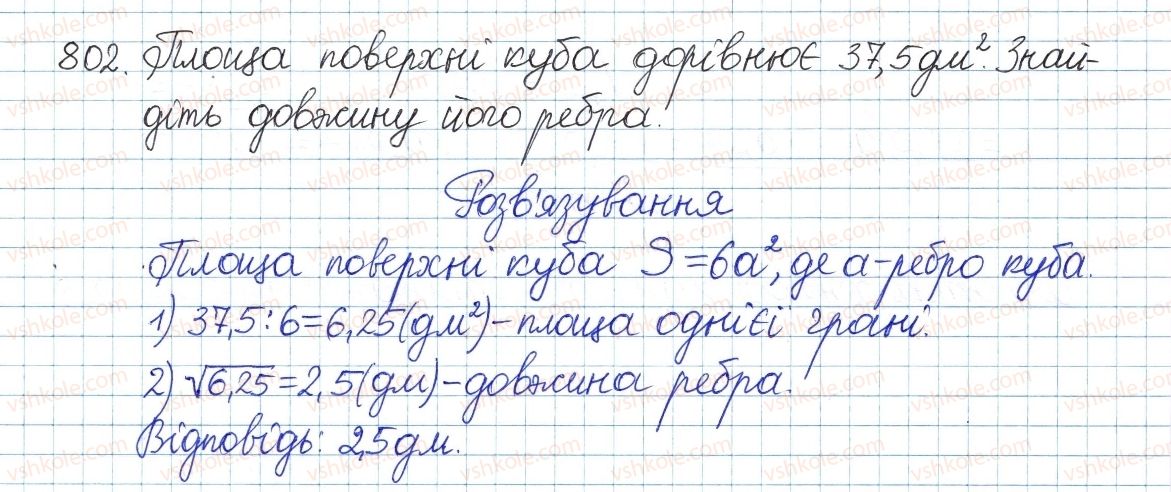 802. Площа поверхні куба дорівнює 37,5 дм². Знай-
діть довжину його ребра.
Розв'язування
Площа поверхні куба S = 6a², де a - ребро куба.
1) 37,5 : 6 = 6,25 (дм²) - площа однієї грані.
2) √6,25 = 2,5 (дм) - довжина ребра.
Відповідь: 2,5 дм.